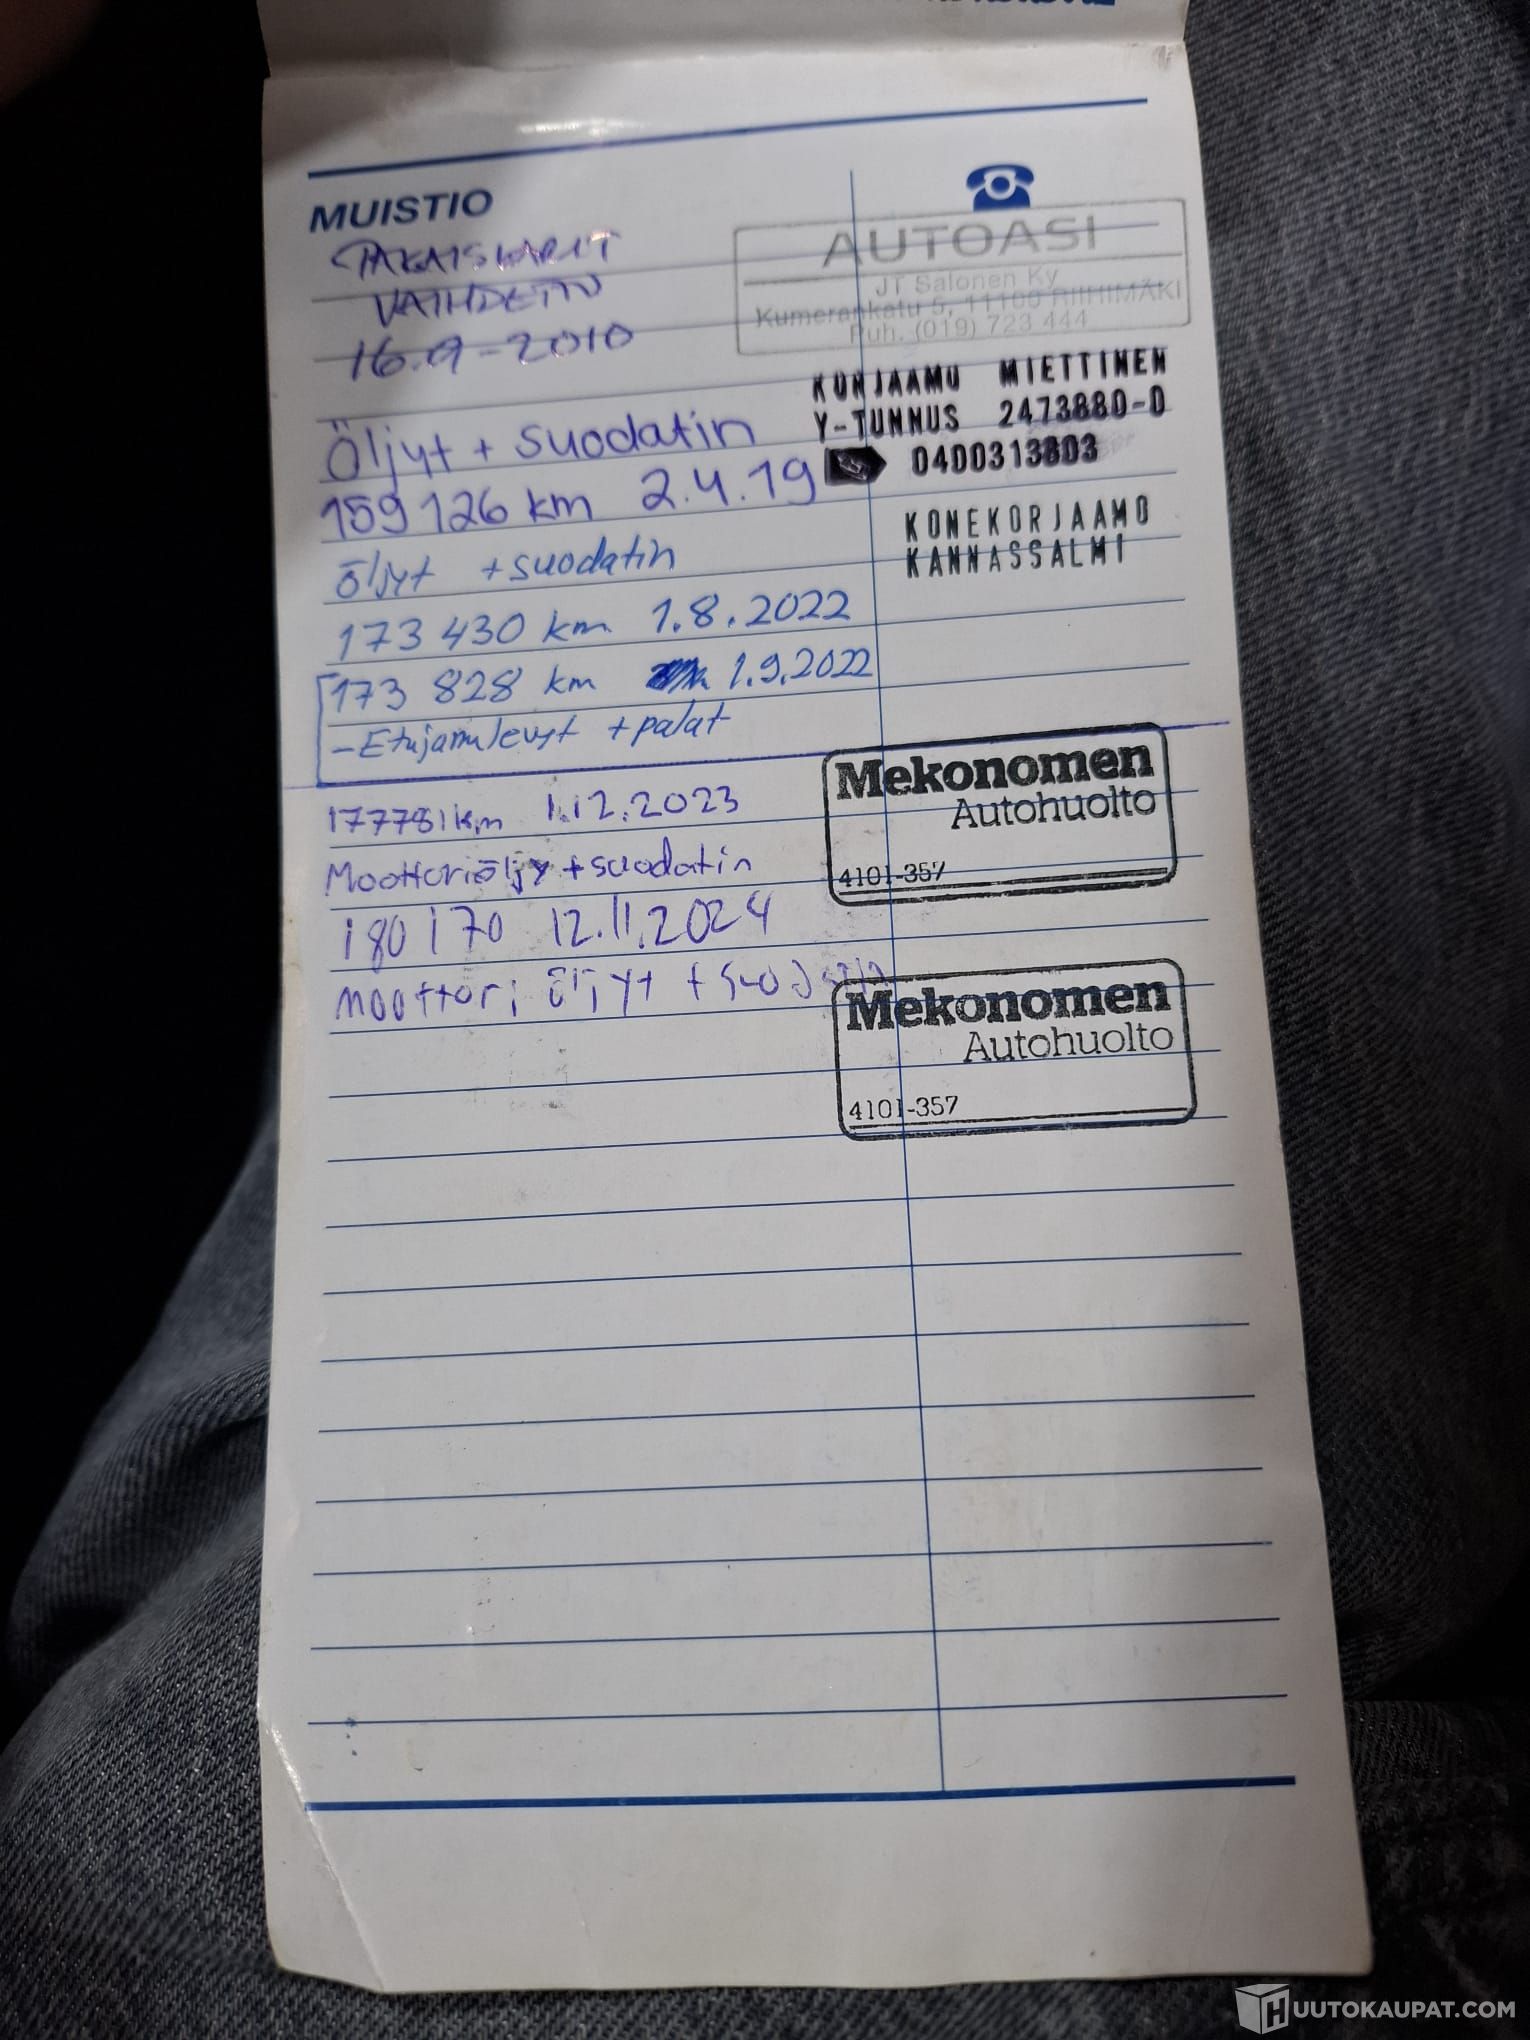 MUISTIO
TAKAISKARIT
VAIHDETTU
16.9-2010
AUTOASI
JT Salonen Ky
Kumerankatu 5, 11100 RIIHIMÄKI
Puh. (019) 723 444
Öljyt + suodatin
159 126 km 2.4.19
KORJAAMO MIETTINEN
Y-TUNNUS 2473880-0
0400313803
öljyt + suodatin
173 430 km 1.8.2022
KONEKORJAAMO
KANNASSALMI
173 828 km 1.9.2022
- Etujarrulevyt + palat
177781km 1.12.2023
Moottoriöljy + suodatin
Mekonomen
Autohuolto
4101-357
180 170 12.11.2024
moottori öljyt + suodatin
Mekonomen
Autohuolto
4101-357
HUUTOKAUPAT.COM